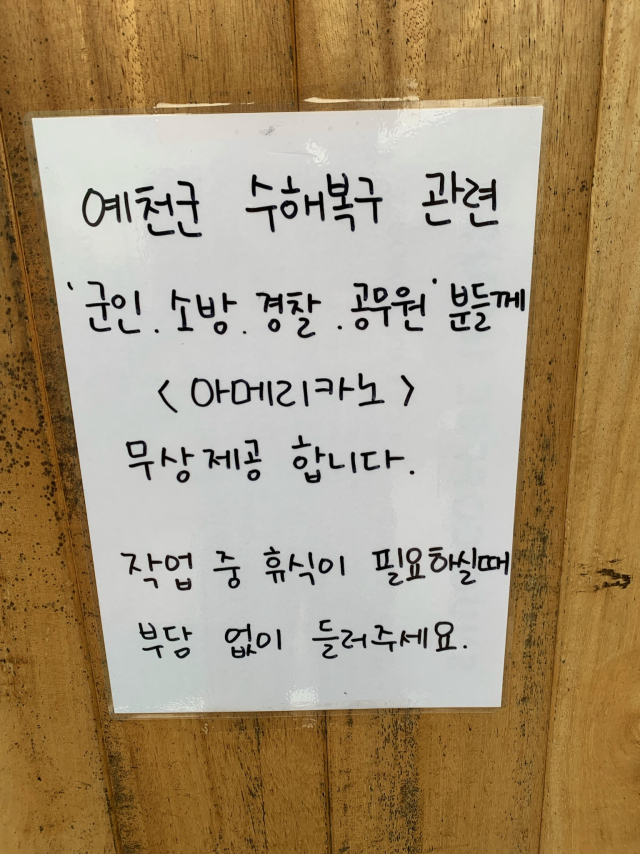 예천군 수해복구 관련
'군인. 소방. 경찰. 공무원' 분들께
<아메리카노>
무상제공 합니다.
작업 중 휴식이 필요하실때
부담 없이 들러주세요.